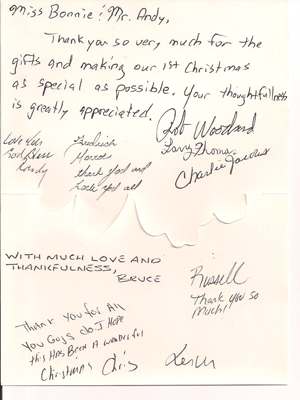 Miss Bonnie & Mr. Andy,
Thank you so very much for the
gifts and making our 1st Christmas
as special as possible. Your thoughtfullness
is greatly appreciated.
Rob Woodard
Larry Thomas
Charlie
Love You
God Bless
Randy
thank God and
Love you all
WITH MUCH LOVE AND
THANKFULNESS,
BRUCE
Russell
Thank you so
much!
Thank you for All
You Guys do I Hope
this Has Been A wonderful
Christmas Chris